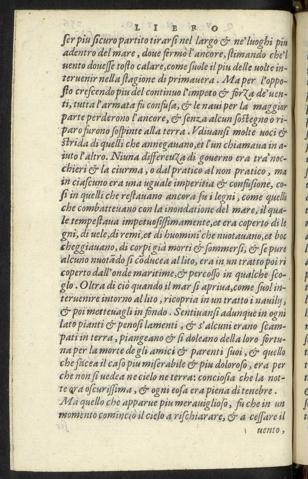 LIBRO
ser più sicuro partito tirarsi nel largo & ne' luoghi più
adentro del mare, doue fermò l'ancore, stimando che'l
uento douesse tosto calare, come suole il più delle uolte in-
teruenir nella stagione di primauera. Ma per l'oppo-
sto crescendo piu del continuo l'impeto & forza de' uen-
ti, tutta l'armata fu confusa, & le naui per la maggior
parte perderono l'ancore, & senza alcun sostegno o ri-
paro furono sospinte alla terra. Vdiuansi molte uoci &
strida di quelli che annegauano, et l'un chiamaua in a-
iuto l'altro. Niuna differenza di gouerno era tra' noc-
chieri & la ciurma, o dal pratico al non pratico, ma
in ciascuno era una uguale imperitia & confusione, co-
si in quelli che restauano ancora su i legni, come quelli
che combatteuano con la inondatione del mare, il qua-
le tempestaua impetuosissimamente, et era coperto di le
gni, di uele, di remi, et di huomini che notauano, et boc
cheggiauano, di corpi già morti & sommersi, & se pure
alcuno nuotādo si cōducea al lito, era in un tratto poi ri
coperto dall'onde maritime, & percosso in qualche sco-
glo. Oltra di ciò quando il mar si apriua, come suol in-
teruenire intorno al lito, ricopria in un tratto i nauily,
& poi metteuagli in fondo. Sentiuansi adunque in ogni
lato pianti & penosi lamenti, & s'alcuni erano scam-
pati in terra, piangeano & si doleano della loro fortu-
na per la morte de gli amici & parenti suoi, & quello
che facea il caso piu miserabile & piu doloroso, era per
che non si uedea ne cielo ne terra: conciosia che la not-
te era oscurissima, & ogni cosa era piena di tenebre.
Ma quello che apparue piu merauiglioso, fu che in un
momento cominciò il cielo a rischiarare, & a cessare il
uento,